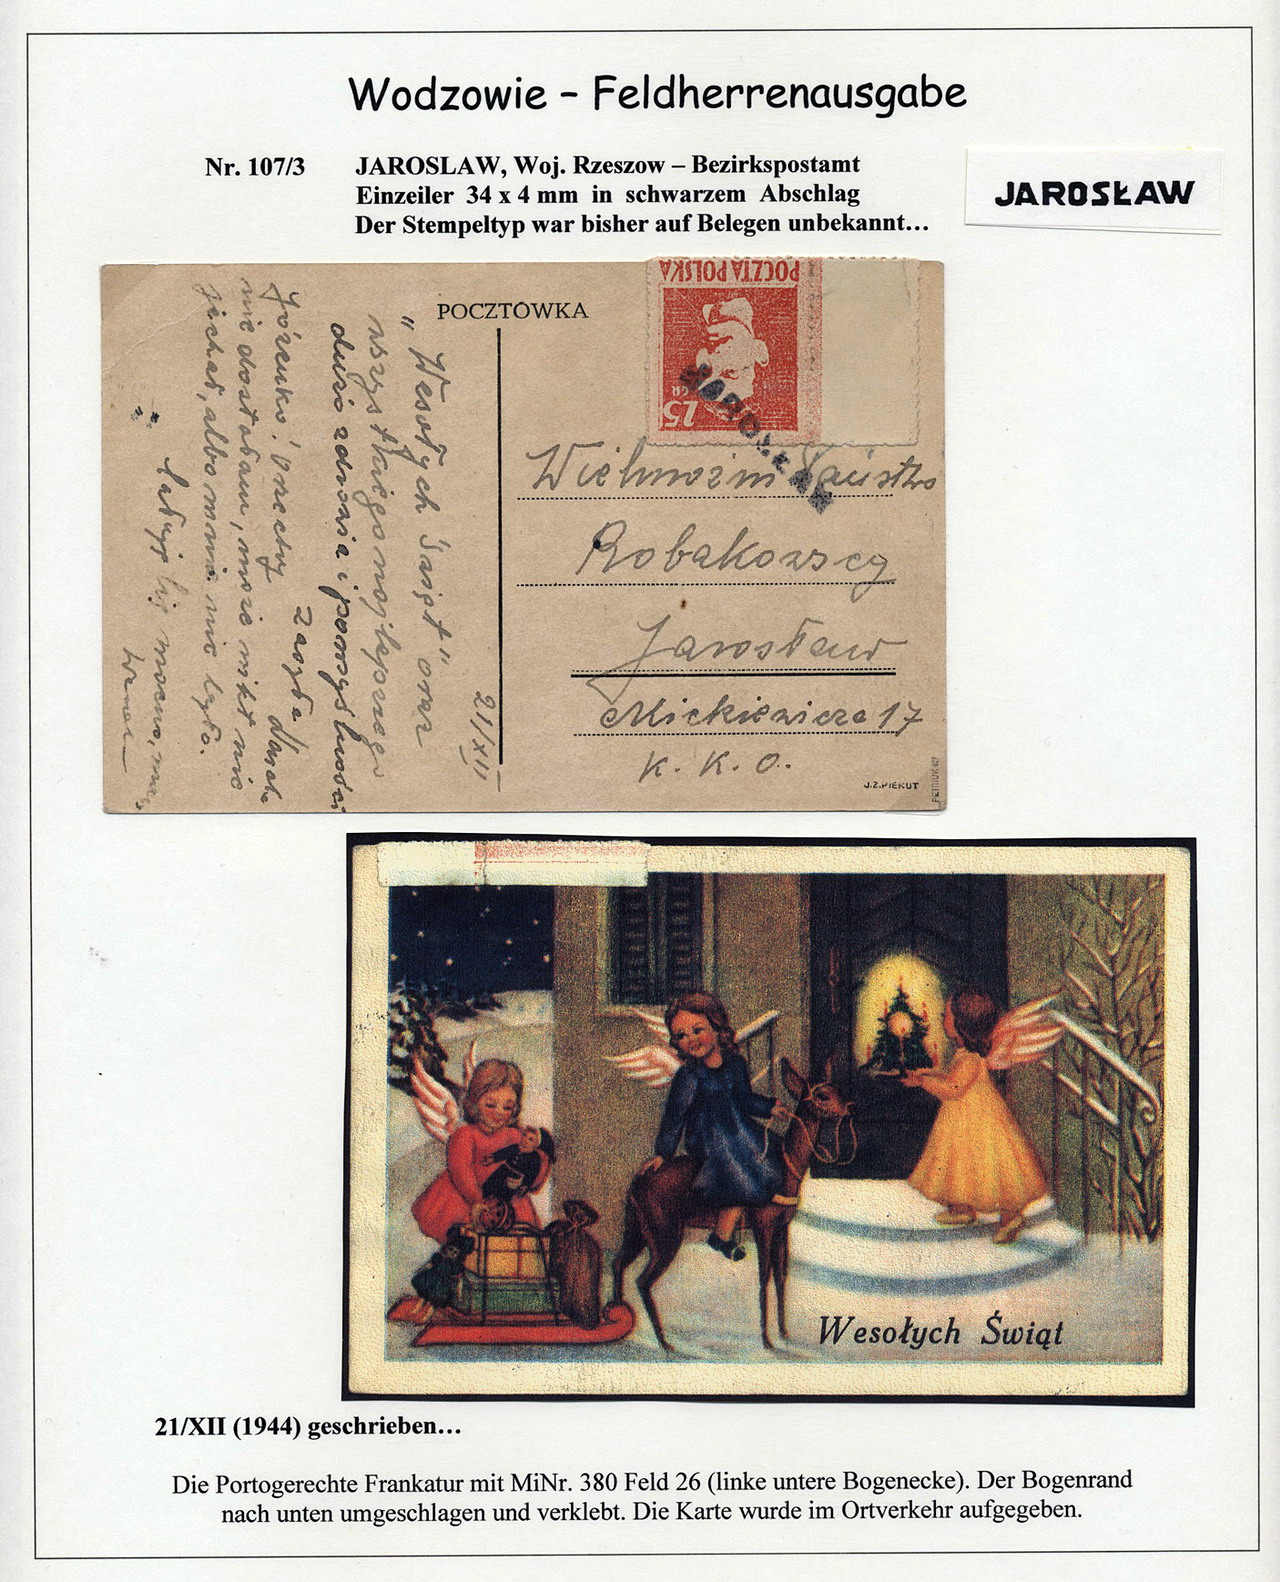 Wodzowie – Feldherrenausgabe
Nr. 107/3 JAROSLAW, Woj. Rzeszow – Bezirkspostamt
Einzeiler 34 x 4 mm in schwarzem Abschlag
Der Stempeltyp war bisher auf Belegen unbekannt...
JAROSŁAW
POCZTÓWKA
POCZTA POLSKA
25
GR
JAROSŁAW
Wielmożni Państwo
Robakowscy
Jarosław
Mickiewicza 17
K. K. O.
J.Z.PIEKUT
21/XII
"Wesołych Świąt" oraz
wszystkiego najlepszego
dużo zdrowia i pomyślności
zasyła
Wesołych Świąt
21/XII (1944) geschrieben...
Die Portogerechte Frankatur mit MiNr. 380 Feld 26 (linke untere Bogenecke). Der Bogenrand
nach unten umgeschlagen und verklebt. Die Karte wurde im Ortverkehr aufgegeben.